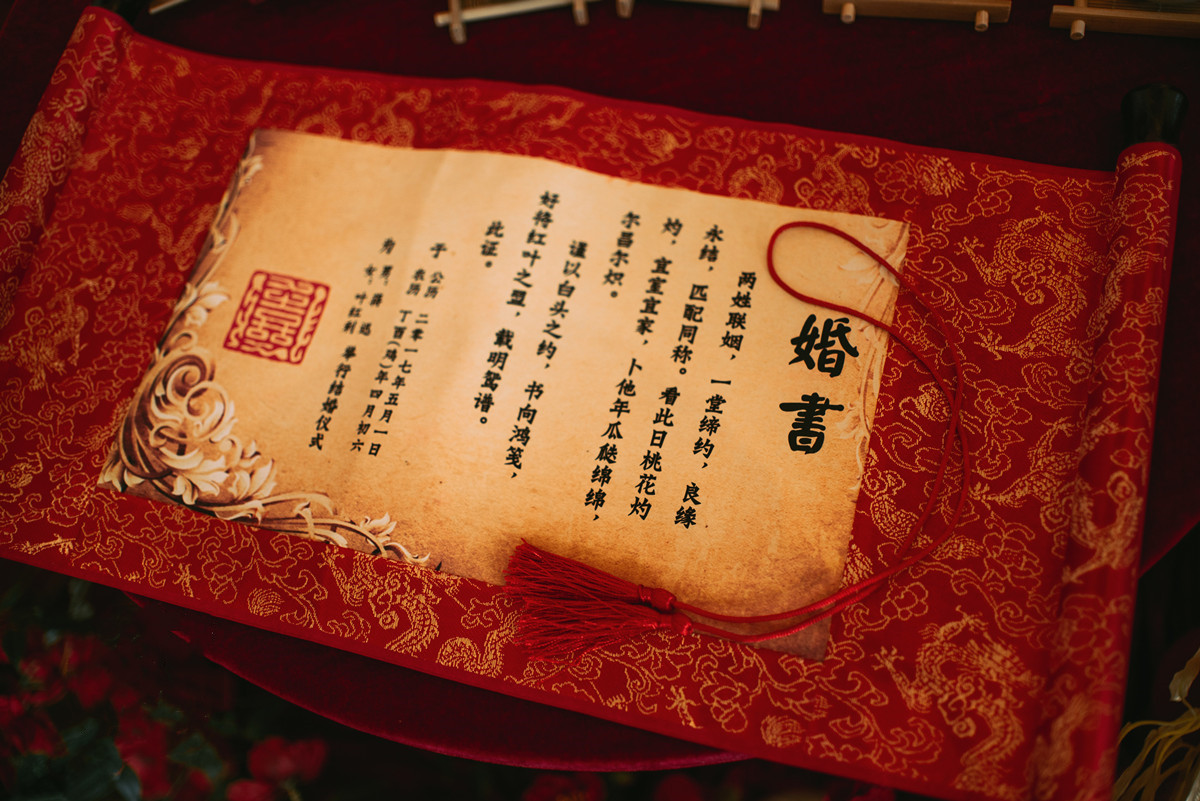 婚書
两姓联姻，一堂缔约，良缘
永结，匹配同称。看此日桃花灼
灼，宜室宜家，卜他年瓜瓞绵绵，
尔昌尔炽。
谨以白头之约，书向鸿笺，
好将红叶之盟，载明鸳谱。
此证。
于 公历 二零一七年五月一日
农历 丁酉(鸡)年四月初六
为 男：蒋
女：叶红 举行结婚仪式